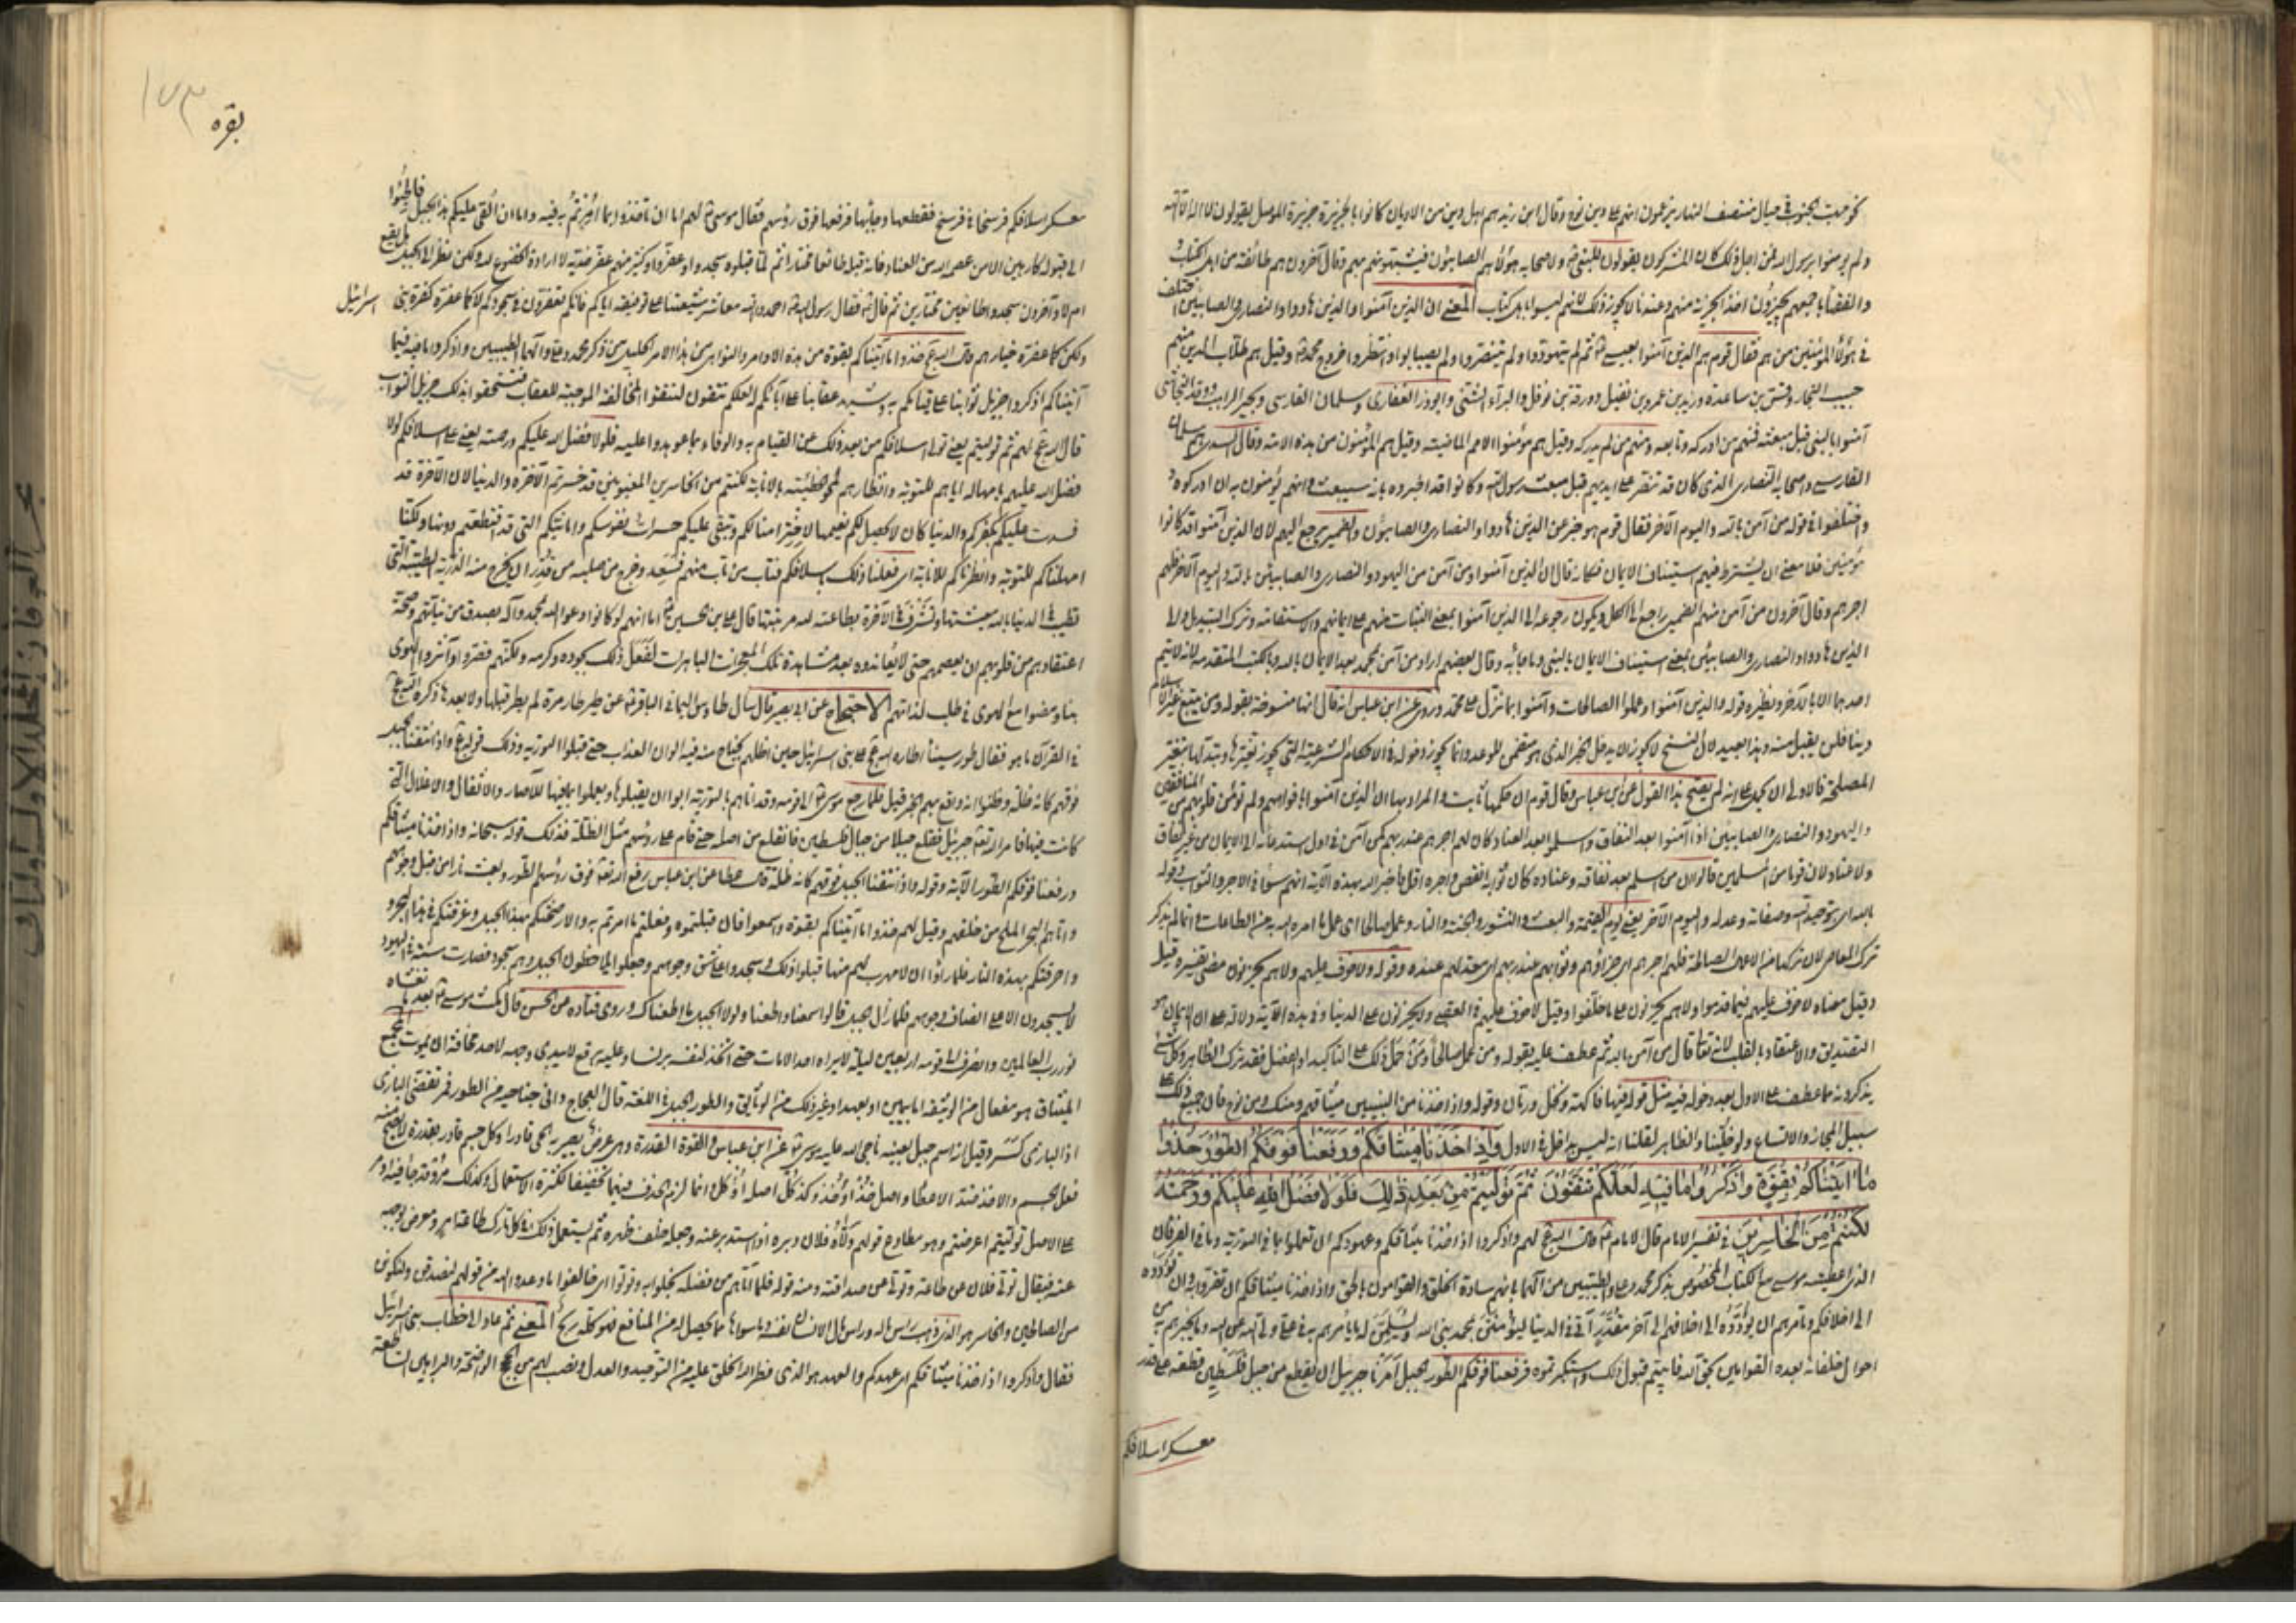 نحو مهب الجنوب حيال منتصف النهار يزعمون انهم على دين نوح وقال ابن زيد هم اهل دين من الاديان كانوا بالجزيرة جزيرة الموصل يقولون لا اله الا الله
ولم يؤمنوا برسول الله فمن اجل ذلك كان المشركون يقولون للنبي ولاصحابه هؤلاء الصابئون يشبهونهم بهم وقال آخرون هم طائفة من اهل الكتاب
والفقهاء باجمعهم يجيزون اخذ الجزية منهم وعندنا لا يجوز ذلك لانهم ليسوا باهل كتاب المعنى ان الذين آمنوا والذين هادوا والنصارى والصابئين اختلف
في هؤلاء المؤمنين من هم فقال قوم هم الذين آمنوا بعيسى ثم لم يتهودوا ولم يتنصروا ولم يصبأوا وانتظروا خروج محمد وقيل هم طلاب الدين منهم
حبيب النجار وقس بن ساعدة وزيد بن عمرو بن نفيل وورقة بن نوفل والبراء الشني وابو ذر الغفاري وسلمان الفارسي وبحير الراهب ووفد النجاشي
آمنوا بالنبي قبل مبعثه فمنهم من ادركه وتابعه ومنهم من لم يدركه وقيل هم مؤمنوا الامم الماضية وقيل هم المؤمنون من هذه الامة وقال السدي هم سلمان
الفارسي واصحابه النصارى الذي كان قد تنصر على ايديهم قبل مبعث رسول الله وكانوا قد اخبروه بانه سيبعث وانهم يؤمنون به ان ادركوه
واختلفوا في قوله من آمن بالله واليوم الآخر فقال قوم هو خبر عن الذين هادوا والنصارى والصابئون والضمير يرجع اليهم لان الذين آمنوا قد كانوا
مؤمنين فلا معنى ان يشترط فيهم استيناف الايمان فكانه قال ان الذين آمنوا ومن آمن من اليهود والنصارى والصابئين بالله واليوم الآخر فلهم
اجرهم وقال آخرون من آمن منهم الضمير راجع الى الكل ويكون رجوعه الى الذين آمنوا بمعنى الثبات منهم على ايمانهم والاستقامة وترك التبديل والى
الذين هادوا والنصارى والصابئين بمعنى استيناف الايمان بالنبي وما جاء به وقال بعضهم اراد من آمن بمحمد بعد الايمان بالله وبالكتب المتقدمة لانه لا يتم
احدهما الا بالآخر ونظيره قوله والذين آمنوا وعملوا الصالحات وآمنوا بما نزل على محمد وروي عن ابن عباس انه قال انها منسوخة بقوله ومن يبتغ غير الاسلام
دينا فلن يقبل منه وهذا بعيد لان النسخ لا يجوز ان يدخل الخبر الذي هو متضمن للوعد وانما يجوز دخوله في الاحكام الشرعية التي يجوز تغيرها وتبدلها بتغير
المصلحة فالاولى ان يحمل على انه لم يصح هذا القول عن ابن عباس وقال قوم ان حكمها ثابت والمراد بها ان الذين آمنوا بافواههم ولم تؤمن قلوبهم من المنافقين
واليهود والنصارى والصابئين اذا آمنوا بعد النفاق واسلموا بعد العناد كان لهم اجرهم عند ربهم كمن آمن في اول استدعائه الى الايمان من غير نفاق
ولا عناد لان قوما من المسلمين قالوا ان من اسلم بعد نفاقه وعناده كان ثوابه انقص واجره اقل فاخبر الله بهذه الآية انهم سواء في الاجر والثواب وقوله
بالله اي بتوحيد الله وصفاته وعدله واليوم الآخر يعني يوم القيمة والبعث والنشور والجنة والنار وعمل صالحا اي عمل ما امره الله به من الطاعات وانما لم يذكر
ترك المعاصي لان تركها من الاعمال الصالحة فلهم اجرهم اي جزاؤهم وثوابهم عند ربهم اي معد لهم عنده وقوله ولا خوف عليهم ولا هم يحزنون مضى تفسيره قبل
وقيل معناه لا خوف عليهم فيما قدموا ولا هم يحزنون على ما خلفوا وقيل لا خوف عليهم في العقبى ولا يحزنون على الدنيا وفي هذه الآية دلالة على ان الايمان هو
التصديق والاعتقاد بالقلب لانه تعالى قال من آمن بالله ثم عطف عليه بقوله ومن عمل صالحا ومن حمل ذلك على التاكيد او الفضل فقد ترك الظاهر وكل شيء
يذكرونه مما عطف على الاول بعد دخوله فيه مثل قوله فيها فاكهة ونخل ورمان وقوله واذ اخذنا من النبيين ميثاقهم ومنك ومن نوح فان جميع ذلك على
سبيل المجاز والاتساع ولو خلينا والظاهر لقلنا انه ليس بداخل في الاول وَاِذْ اَخَذْنَا مِيثَاقَكُمْ وَرَفَعْنَا فَوْقَكُمُ الطُّورَ خُذُوا
مَا آتَيْنَاكُمْ بِقُوَّةٍ وَاذْكُرُوا مَا فِيهِ لَعَلَّكُمْ تَتَّقُونَ ثُمَّ تَوَلَّيْتُمْ مِنْ بَعْدِ ذَلِكَ فَلَوْلَا فَضْلُ اللهِ عَلَيْكُمْ وَرَحْمَتُهُ
لَكُنْتُمْ مِنَ الْخَاسِرِينَ في تفسير الامام قال الامام قال الله لهم واذكروا اذ اخذنا ميثاقكم وعهودكم ان تعملوا بما في التورية وما في الفرقان
الذي اعطيته موسى مع الكتاب المخصوص بذكر محمد وعلي والطيبين من آلهما بانهم سادة الخلق والقوامون بالحق واذ اخذنا ميثاقكم ان تقروا به وان تؤدوه
الى اخلافكم وتامرهم ان يؤدوه الى اخلافهم الى آخر مقدرا آتي في الدنيا ليؤمنن بمحمد نبي الله ويسلمن له ما يامرهم به في علي ولي الله عن الله وما يخبرهم به من
احوال خلفائه بعده القوامين بحق الله فابيتم قبول ذلك واستكبرتموه فرفعنا فوقكم الطور الجبل امرنا جبريل ان يقطع من جبل فلسطين قطعة على قدر
معسكر اسلافكم
١٧٣
بقره
معسكر اسلافكم فرسخا في فرسخ فقطعها وجاء بها فرفعها فوق رؤسهم فقال موسى لهم اما ان تاخذوا بما امرتم به فيه واما ان القي عليكم هذا الجبل فالجئوا
الى قبوله كارهين الا من عصمه الله من العناد فانه قبله طائعا مختارا ثم لما قبلوه سجدوا وعفروا وكثير منهم عفر خديه لا ارادة الخضوع لله ولكن نظر الى الجبل هل يقع
ام لا وآخرون سجدوا طائعين مختارين ثم قال فقال رسول الله احمدوا الله معاشر شيعتنا على توفيقه اياكم فانكم تعفرون في سجودكم لا كما عفره كفرة بني اسرائيل
ولكن كما عفره خيارهم قال الله خذوا ما آتيناكم بقوة من هذه الاوامر والنواهي من هذا الامر الجليل من ذكر محمد وعلي وآلهما الطيبين واذكروا ما فيه فيما
آتيناكم اذكروا جزيل ثوابنا على قيامكم به وشديد عقابنا على ابائكم لعلكم تتقون لتتقوا المخالفة الموجبة للعقاب فتستحقوا بذلك جزيل الثواب
قال الله لهم ثم توليتم يعني تولى اسلافكم من بعد ذلك عن القيام به والوفاء بما عوهدوا عليه فلولا فضل الله عليكم ورحمته يعني على اسلافكم لولا
فضل الله عليهم بامهاله اياهم للتوبة وانظارهم لمحو الخطيئة بالانابة لكنتم من الخاسرين المغبونين قد خسرتم الآخرة والدنيا لان الآخرة قد
فسدت عليكم بكفركم والدنيا كان لا يحصل لكم نعيمها لاخترامنا لكم وتبقى عليكم حسرات نفوسكم وامانيكم التي قد اقتطعتم دونها ولكنا
امهلناكم للتوبة وانظرناكم للانابة اي فعلنا ذلك باسلافكم فتاب من تاب منهم فسعد وخرج من صلبه من قدر ان يخرج منه الذرية الطيبة التي
تطيب في الدنيا بالله معيشتها وتشرف في الآخرة بطاعته لله مرتبتها قال علي بن الحسين اما انهم لو كانوا دعوا الله بمحمد وآله بصدق من نياتهم وصحة
اعتقادهم من قلوبهم ان يعصمهم حتى لا يعاندوه بعد مشاهدة تلك المعجزات الباهرات لفعل ذلك بجوده وكرمه ولكنهم قصروا وآثروا الهوى
بنا ومضوا مع الهوى في طلب لذاتهم الاحتجاج عن ابي بصير قال سال طاوس اليماني الباقر عن طير طار مرة لم يطر قبلها ولا بعدها ذكره الله
في القرآن ما هو فقال طور سيناء اطاره الله على بني اسرائيل حين اظلهم بجناح منه فيه الوان العذاب حتى قبلوا التورية وذلك قوله واذ نتقنا الجبل
فوقهم كانه ظلة وظنوا انه واقع بهم الخبر قيل فلما رجع موسى الى قومه وقد اتاهم بالتورية ابوا ان يقبلوها ويعملوا بما فيها للآصار والاثقال والاغلال التي
كانت فيها فامر الله تعالى جبريل فقلع جبلا من جبال فلسطين فانقلع من اصله حتى قام على رؤسهم مثل الظلة فذلك قوله سبحانه واذ اخذنا ميثاقكم
ورفعنا فوقكم الطور الآية وقوله واذ نتقنا الجبل فوقهم كانه ظلة قال عطا عن ابن عباس رفع الله تعالى فوق رؤسهم الطور وبعث نارا من قبل وجوههم
واتاهم البحر الملح من خلفهم وقيل لهم خذوا ما آتيناكم بقوة واسمعوا فان قبلتموه وفعلتم ما امرتم به والا رضختكم بهذا الجبل وغرقتكم في هذا البحر و
واحرقتكم بهذه النار فلما راوا ان لا مهرب لهم منها قبلوا ذلك وسجدوا على شق وجوههم وجعلوا يلاحظون الجبل وهم سجود فصارت سنة في اليهود
لا يسجدون الا على انصاف وجوههم فلما زال الجبل قالوا سمعنا واطعنا ولولا الجبل ما اطعناك وروى قتادة عن الحسن قال مكث موسى بعد ما تغشاه
نور رب العالمين وانصرف الى قومه اربعين ليلة لا يراه احد الا مات حتى اتخذ لنفسه برنسا وعليه برقع لا يبدي وجهه لاحد مخافة ان يموت المجمع
الميثاق هو مفعال من الوثيقة اما بيمين او بعهد او غير ذلك من الوثائق والطور الجبل في اللغة قال العجاج دانى جناحيه من الطور فمر تقضي البازي
اذا البازي كسر وقيل انه اسم جبل بعينه ناجى الله عليه موسى عن ابن عباس والقوة القدرة وهي عرض يصير به الحي قادرا وكل جسم قادر بقدرة لا يصح منه
فعل الجسم والاخذ ضد الاعطاء واصل خذ اؤخذ وكذا كل اصله اؤكل انما لزم الحذف فيهما تخفيفا لكثرة الاستعمال وكذلك مر وقد جاء فيه اومر
على الاصل توليتم اعرضتم وهو مطاوع قولهم ولاه فلان دبره اذا استدبر عنه وجعله خلف ظهره ثم يستعمل ذلك في كل تارك طاعة امر ومعرض بوجهه
عنه فيقال تولى فلان عن طاعة وتولى عن صداقته ومنه قوله فلما آتاهم من فضله بخلوا به وتولوا اي خالفوا ما وعدوا الله من قولهم لنصدقن ولنكونن
من الصالحين والخاسر هو الذي ذهب راس ماله وراس مال الانسان نفسه وما سواها مما يحصل له من المنافع فهو كله ربح المعنى ثم عاد الى خطاب بني اسرائيل
فقال واذكروا اذ اخذنا ميثاقكم اي عهدكم والعهد هو الذي فطر الله الخلق عليه من التوحيد والعدل ونصب لهم من الحجج الواضحة والبراهين الساطعة